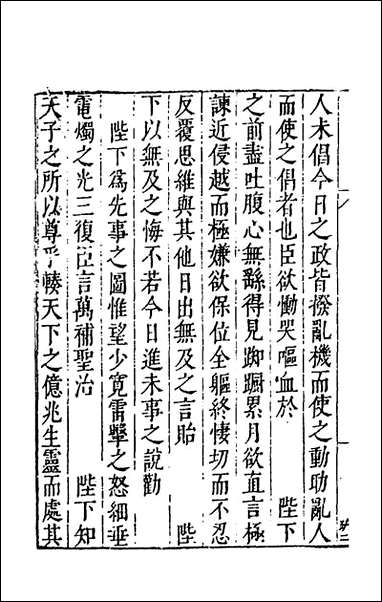 人未倡今日之政皆撥亂機而使之動助亂人
而使之倡者也臣欲慟哭嘔血於　　陛下
之前盡吐腹心無繇得見踟躕累月欲直言極
諫近侵越而極嫌欲保位全軀終悽切而不忍
反覆思維與其他日出無及之言貽　　陛
下以無及之悔不若今日進未事之說勸
陛下爲先事之圖惟望少寬雷霆之怒細垂
電燭之光三復臣言萬補聖治　　陛下知
天子之所以尊乎轃天下之億兆生靈而處其